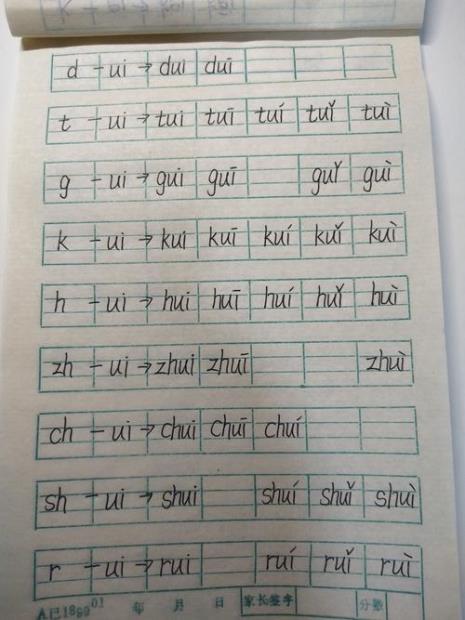 d - ui → dui duī
t - ui → tui tuī tuí tuǐ tuì
g - ui → gui guī guǐ guì
k - ui → kui kuī kuí kuǐ kuì
h - ui → hui huī huí huǐ huì
zh - ui → zhui zhuī zhuì
ch - ui → chui chuī chuí
sh - ui → shui shuí shuǐ shuì
r - ui → rui ruí ruǐ ruì
年 月 日 家长签字 分数